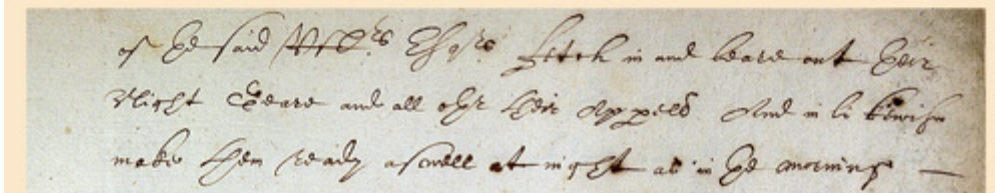 of the said Mrs Chose fetch in and beare out their
Night Geare and all othr their Appells And in likewise
make them ready aswell at night as in the morning —